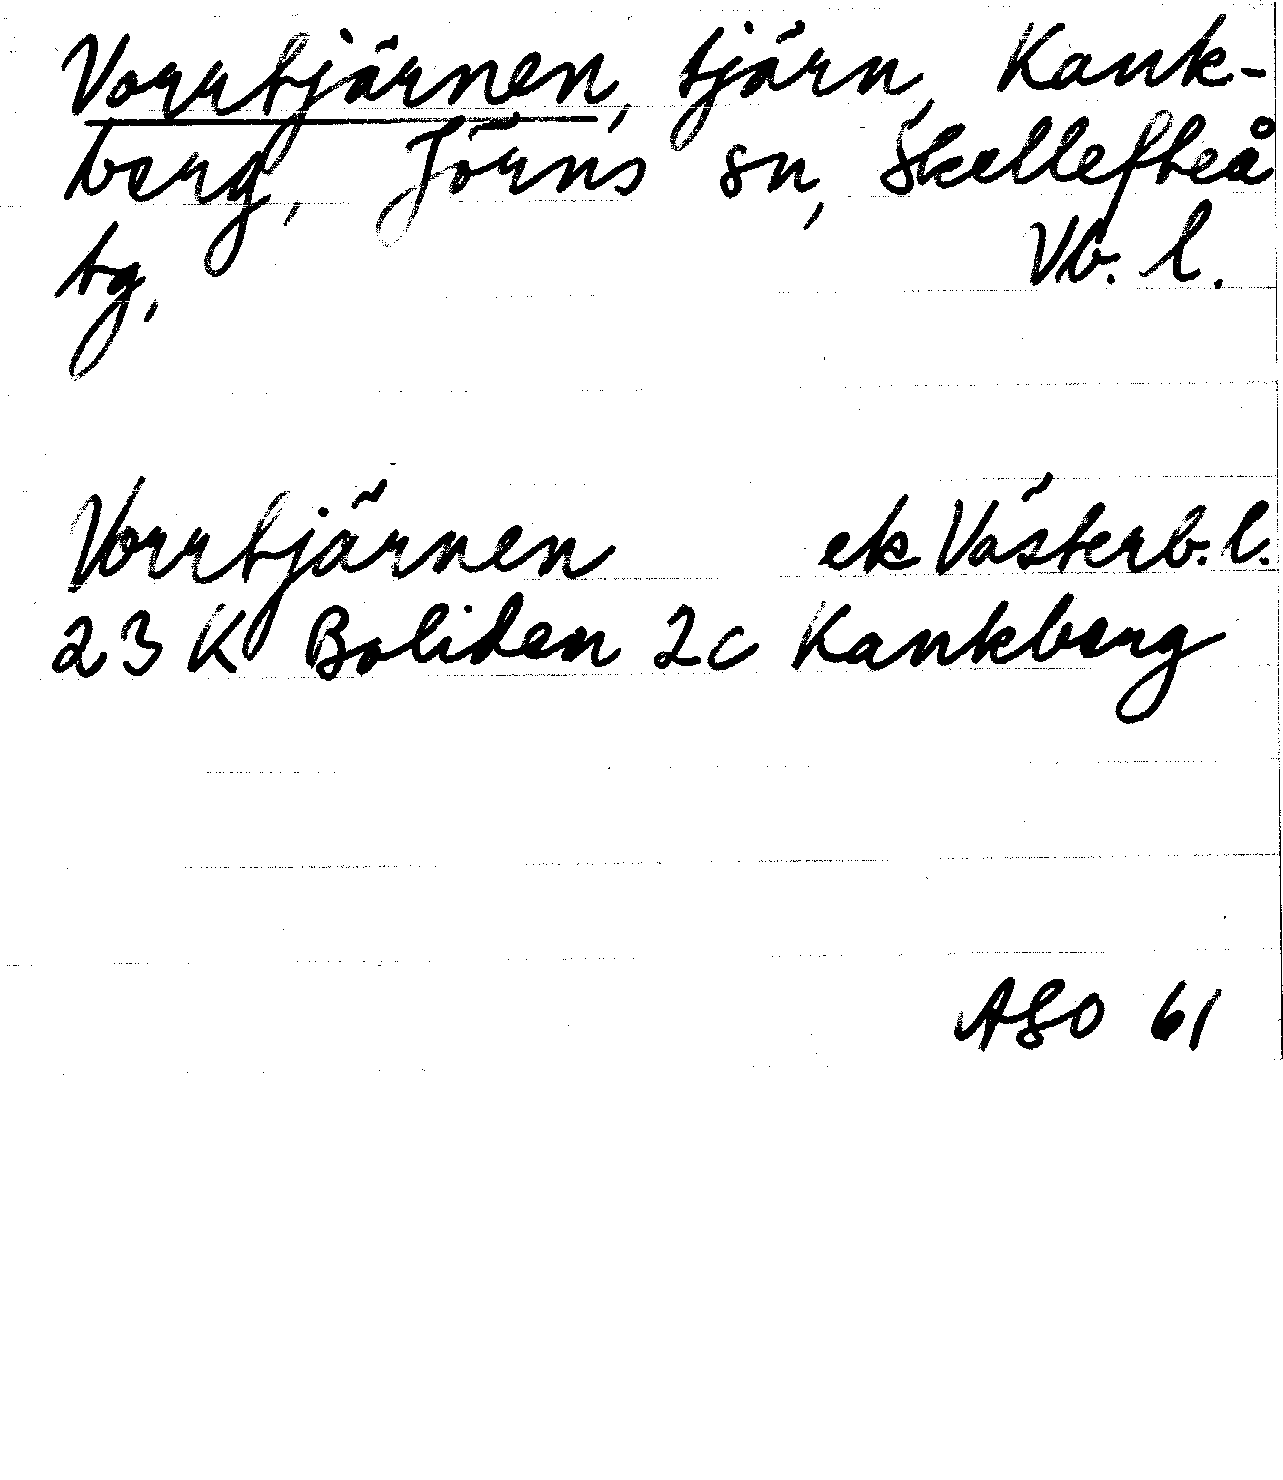 Vorrtjärnen, tjärn, Kank-
berg, Jörns sn, Skellefteå
tg, Vb. l.
Vorrtjärnen ek Västerb. l.
23 K Boliden 2c Kankberg
ASO 61